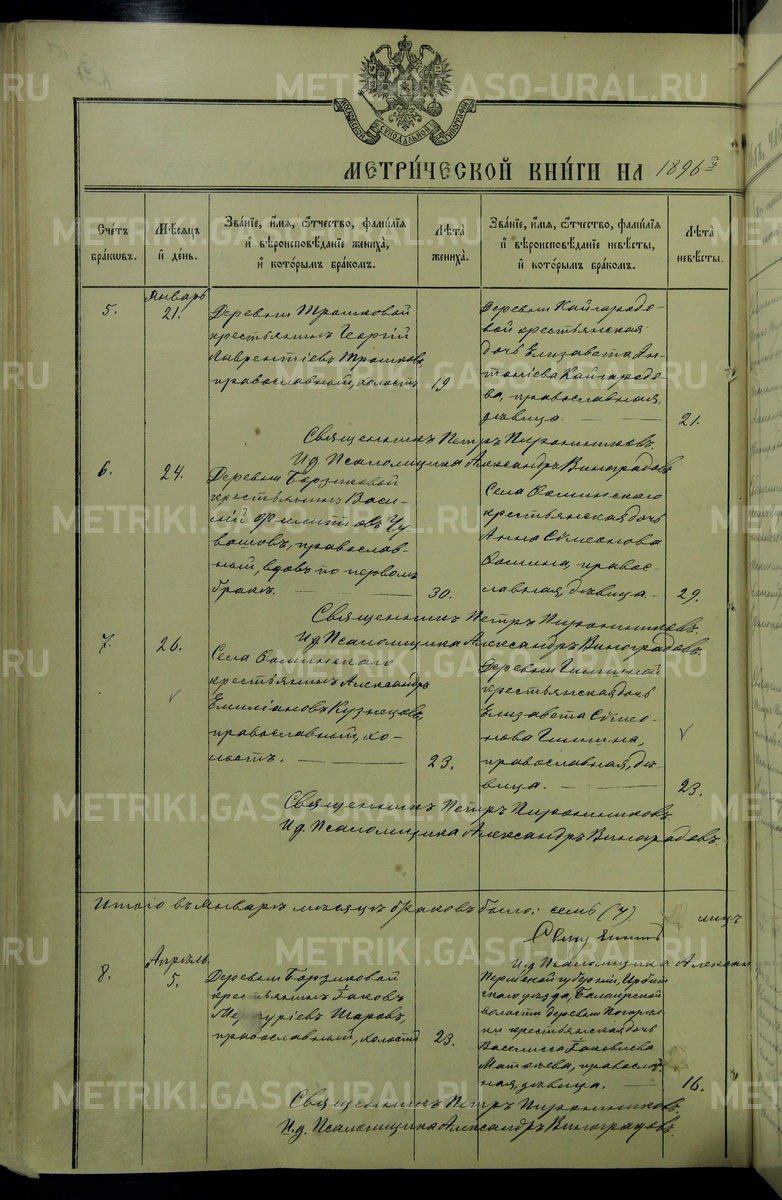 МОСКОВСКОЙ СѴНОДАЛЬНОЙ ТИПОГРАФІИ
МЕТРИ́ЧЕСКОЙ КНИ́ГИ НА 1896 г.
Сче́тъ бра́кωвъ.
Мѣ́сяцъ и҆ де́нь.
Зва́нїе, и҆́мя, ѻ҆́тчество, фами́лїя и҆ вѣроисповѣ́данїе жениха̀, и҆ кото́рымъ бра́комъ.
Лѣ́та жениха̀.
Зва́нїе, и҆́мя, ѻ҆́тчество, фами́лїя и҆ вѣроисповѣ́данїе невѣ́сты, и҆ кото́рымъ бра́комъ.
Лѣ́та невѣ́сты.
5.
Январь
21.
Деревни Трошковой
крестьянинъ Георгій
Лаврентіевъ Трошковъ,
православный, холостъ
19
Деревни Кайгородо-
вой крестьянская
дочь Елизавета Ан-
тоніева Кайгородо-
ва, православная,
дѣвица.
21.
Священникъ Петръ
И.д. Псаломщика Александръ Виноградовъ
6.
24.
Деревни Борзиковой
крестьянинъ Васи-
лій Филитовъ Чу-
вашовъ, православ-
ный, вдовъ по первомъ
бракѣ.
30.
Села Фоминскаго
крестьянская дочь
Анна Сѵмеонова
Фомина, правос-
лавная, дѣвица.
29.
Священникъ Петръ
И.д. Псаломщика Александръ Виноградовъ.
7.
26.
Села Фоминскаго
крестьянинъ Александръ
Емиліановъ Кузнецовъ,
православный, хо-
лостъ.
23.
крестьянская дочь
Елизавета Сѵмео-
нова
православная, дѣ-
вица.
23.
Священникъ Петръ
И.д. Псаломщика Александръ Виноградовъ.
Итого въ Январѣ мѣсяцѣ браковъ было: семь (7)
лицъ
И.д. Псаломщика Александ
8.
Апрѣль.
5.
Деревни Борзиковой
крестьянинъ Іаковъ
Меркуріевъ Шаровъ,
православный, холостъ
23.
Пермской губерніи, Ирбит-
скаго уѣзда,
волости деревни
крестьянская дочь
Василисса Іаковлева
православ-
ная, дѣвица.
16.
Священникъ Петръ
И.д. Псаломщика Александръ Виноградовъ.
METRIKI.GASO-URAL.RU